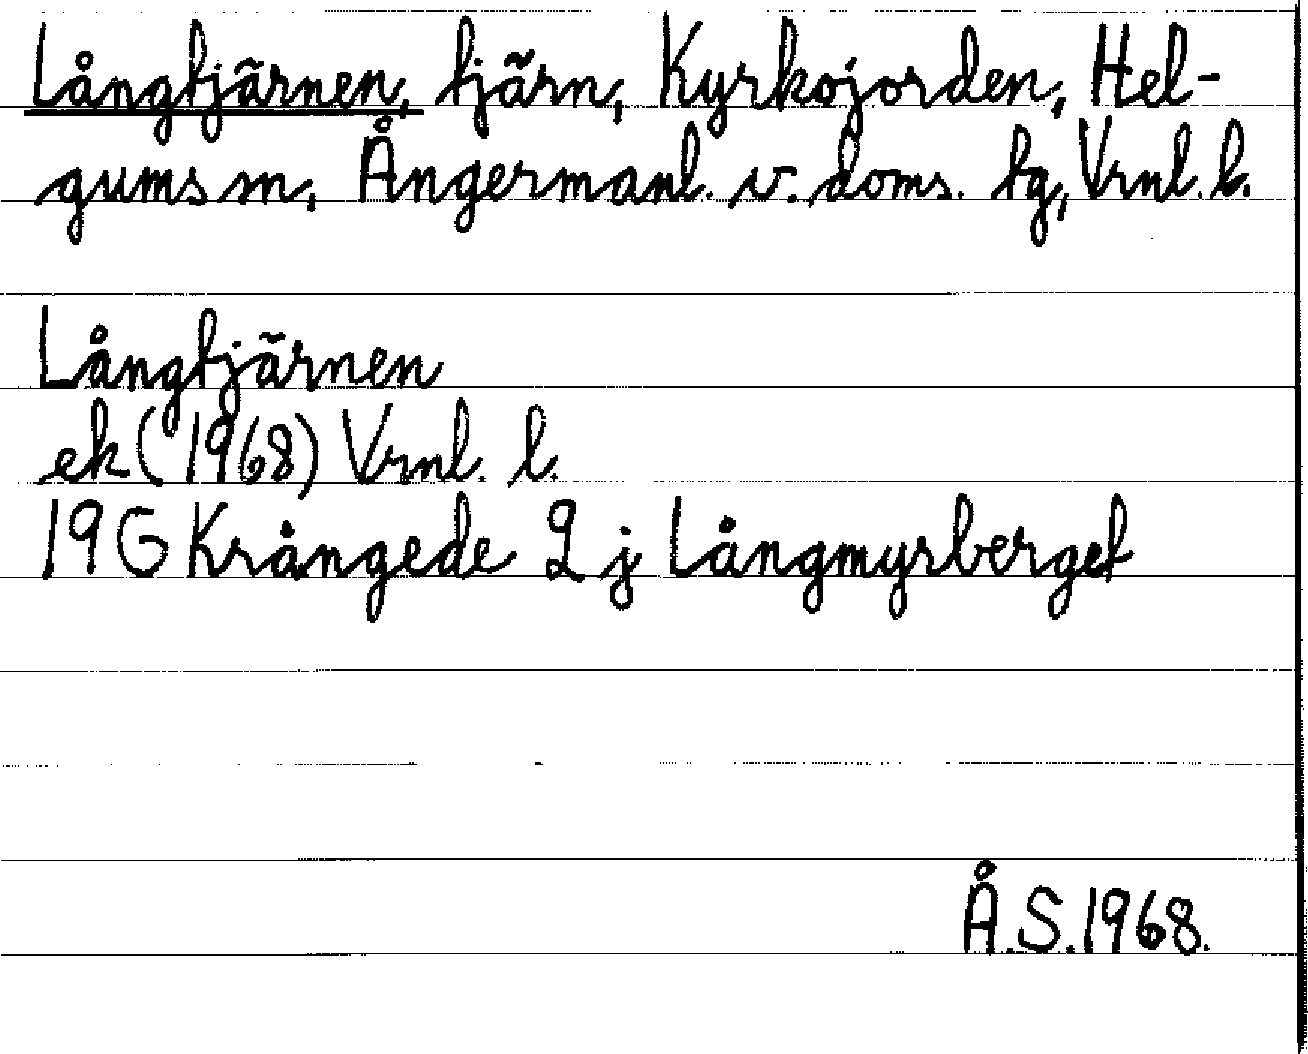 Långtjärnen, tjärn, Kyrkojorden, Hel-
gums sn, Ångermanl. v. doms. tg, Vrnl. l.
Långtjärnen
ek (1968) Vrnl. l.
19G Krångede 2 j Långmyrberget
Å.S. 1968.